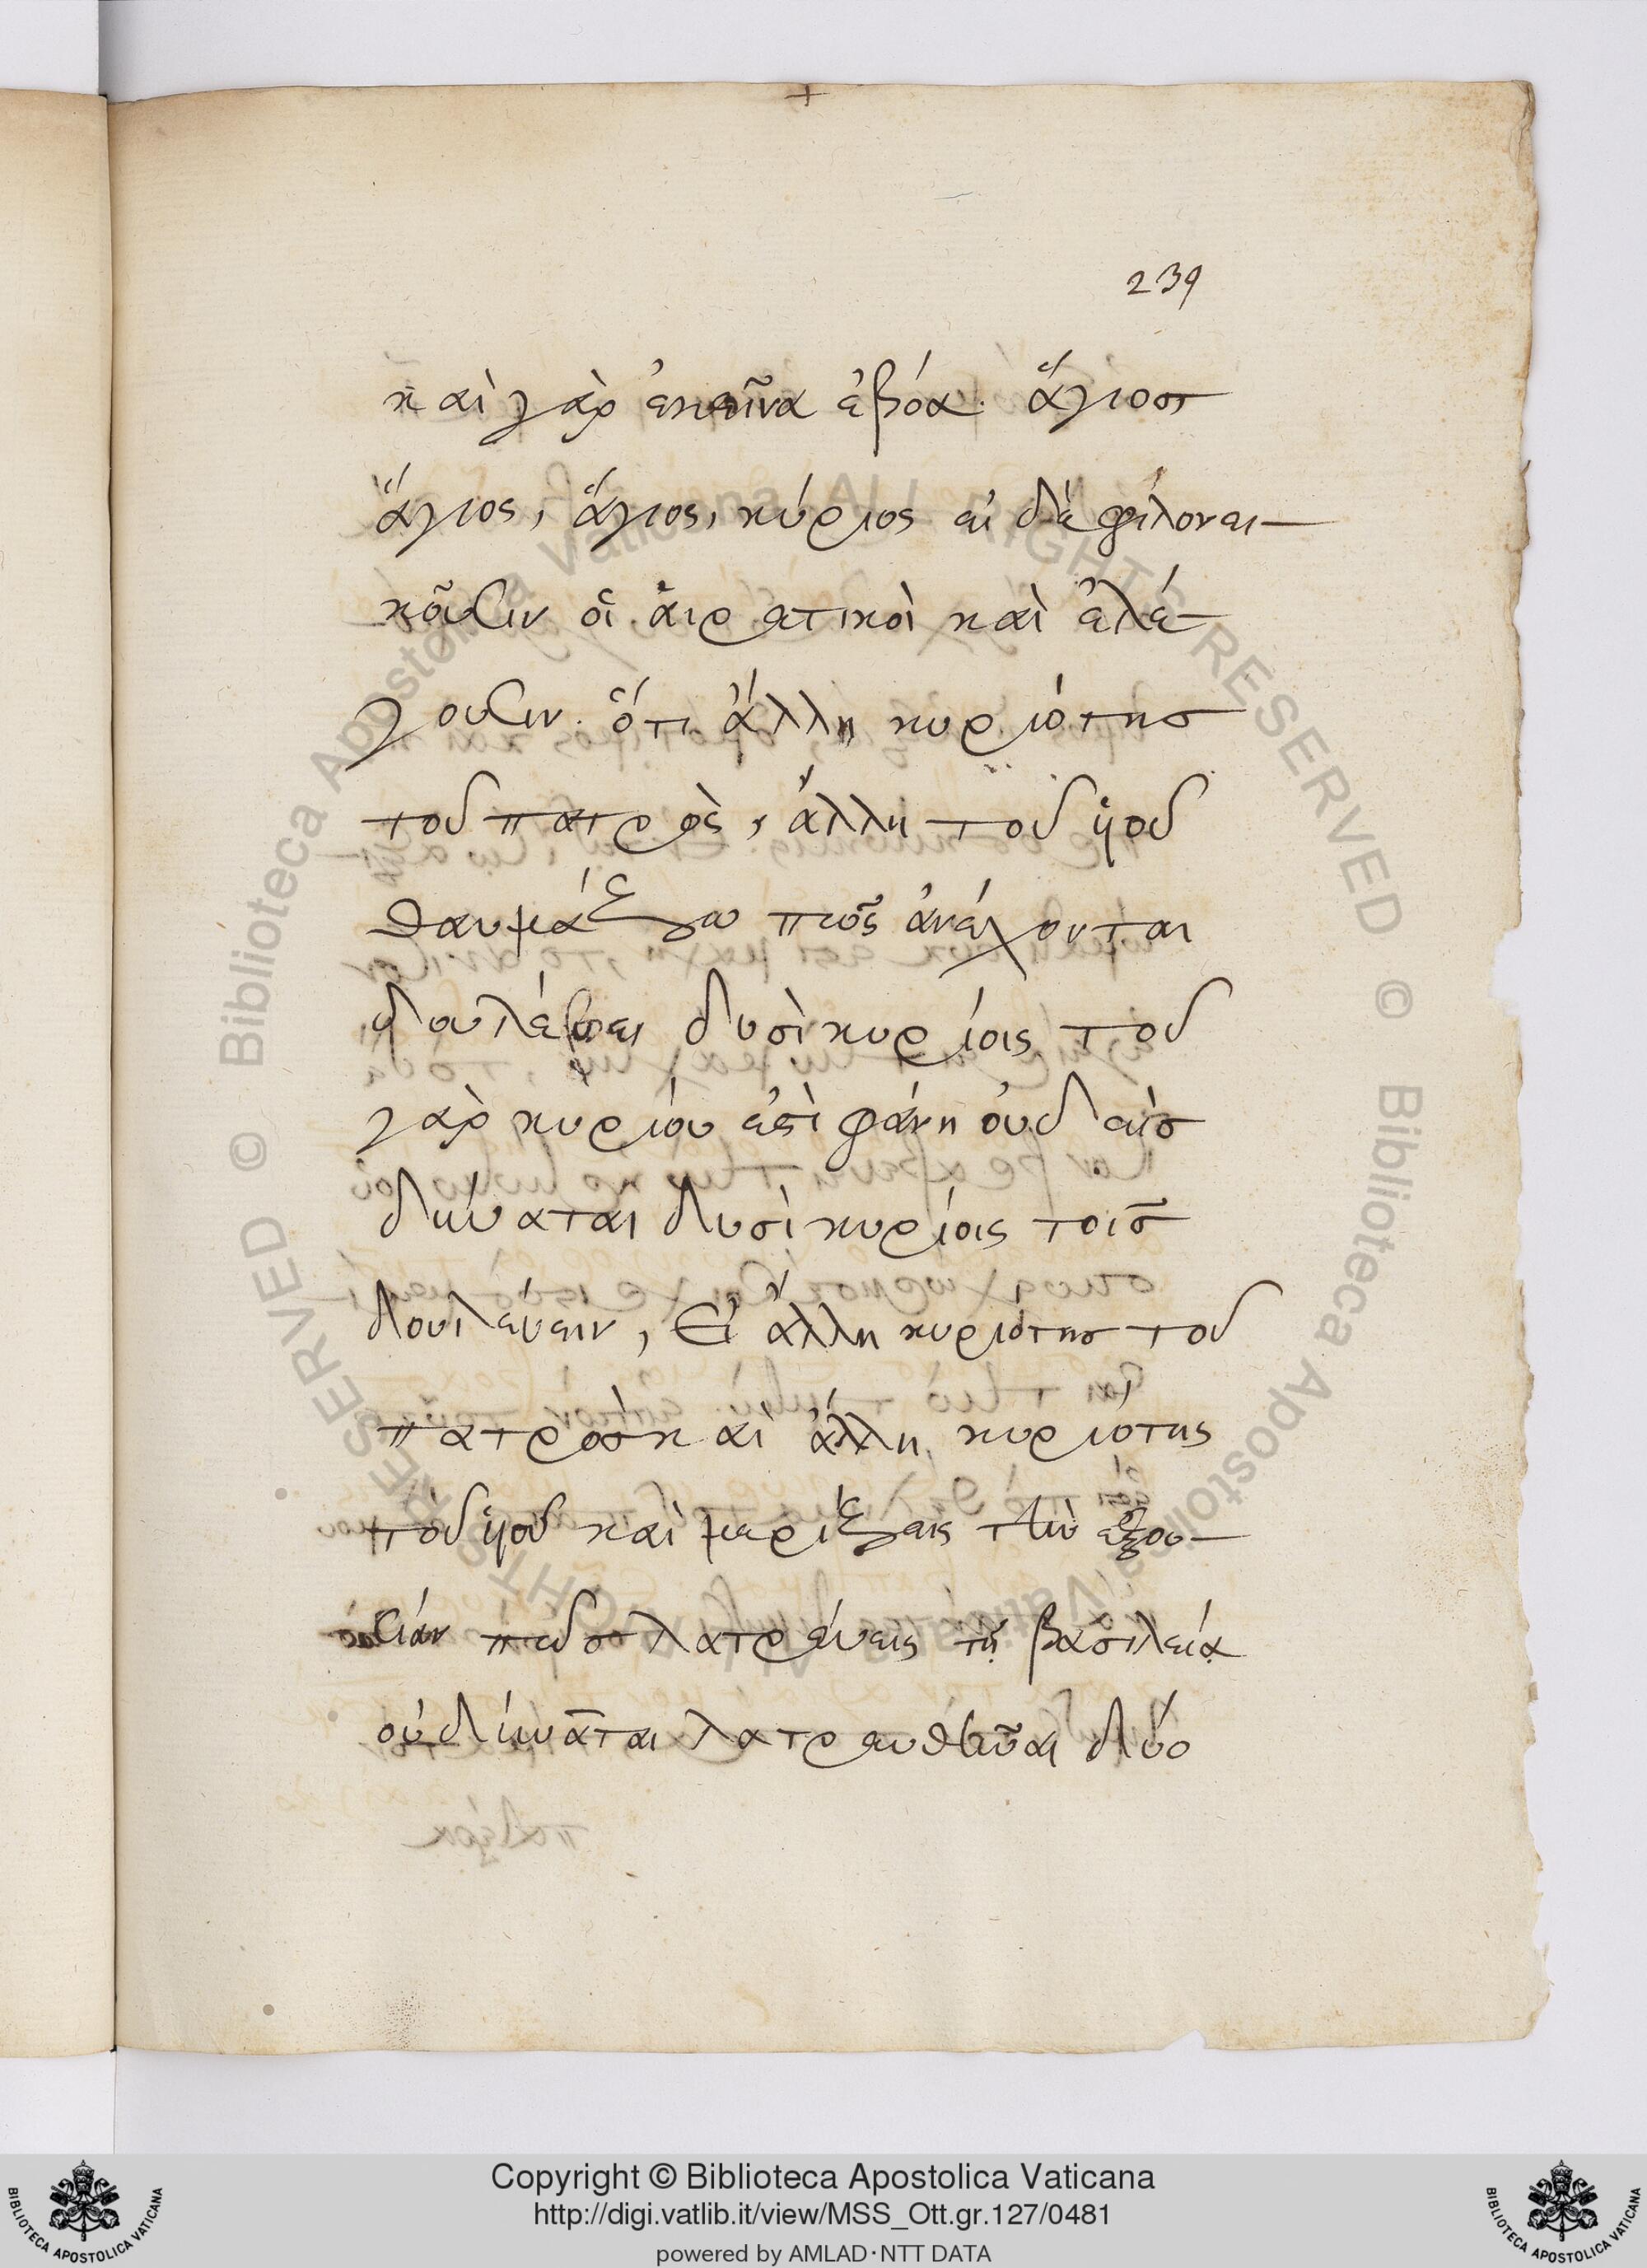 239
καὶ γὰρ ἐκεῖνα ἐβόα. ἅγιος
ἅγιος, ἅγιος, κύριος εἰ δὲ φιλονει-
κοῦσιν οἱ αἱρετικοὶ καὶ ἐλέ-
γουσιν. ὅτι ἄλλη κυριότης
τοῦ πατρὸς, ἄλλη τοῦ ὑιοῦ
θαυμάζω πῶς ἀνέχονται
δυσὶ κυρίοις τοῦ
γὰρ κυρίου φάνη οὐδεὶς
δύναται δυσὶ κυρίοις τοῖς
δουλεύειν, Εἰ ἄλλη κυριότης τοῦ
πατρὸς καὶ ἄλλη κυριότης
τοῦ ὑιοῦ καὶ μερίζεις τὴν ἐξου-
σίαν πῶς λατρεύεις τῇ βασιλείᾳ
οὐ δύναται λατρευθῆναι δύο
Copyright © Biblioteca Apostolica Vaticana
http://digi.vatlib.it/view/MSS_Ott.gr.127/0481
powered by AMLAD·NTT DATA
BIBLIOTECA APOSTOLICA VATICANA
BIBLIOTECA APOSTOLICA VATICANA